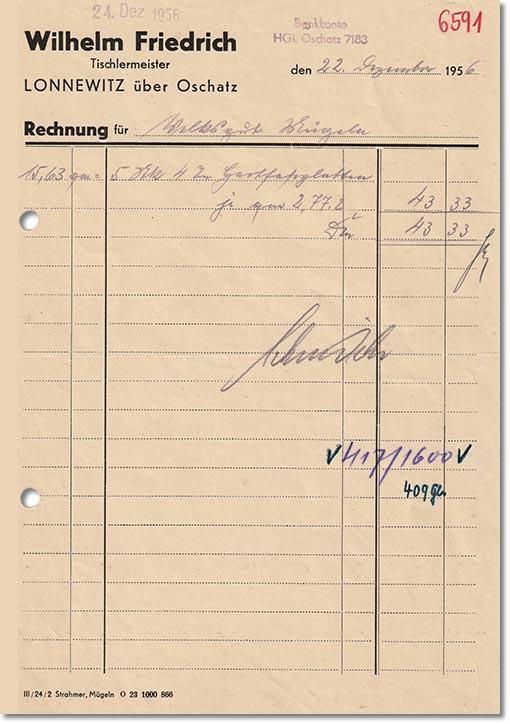 24. Dez. 1956
6591
Bankkonto
HGL Oschatz 7183
Wilhelm Friedrich
Tischlermeister
LONNEWITZ über Oschatz
den 22. Dezember 1956
Rechnung für Volksgut Mügeln
15,63 qm = 5 Stk 4 Hartfaserplatten
je qm 2,77.2 43 33
DM 43 33
V 417/1600 V
409
III/24/2 Strahmer, Mügeln O 23 1000 866